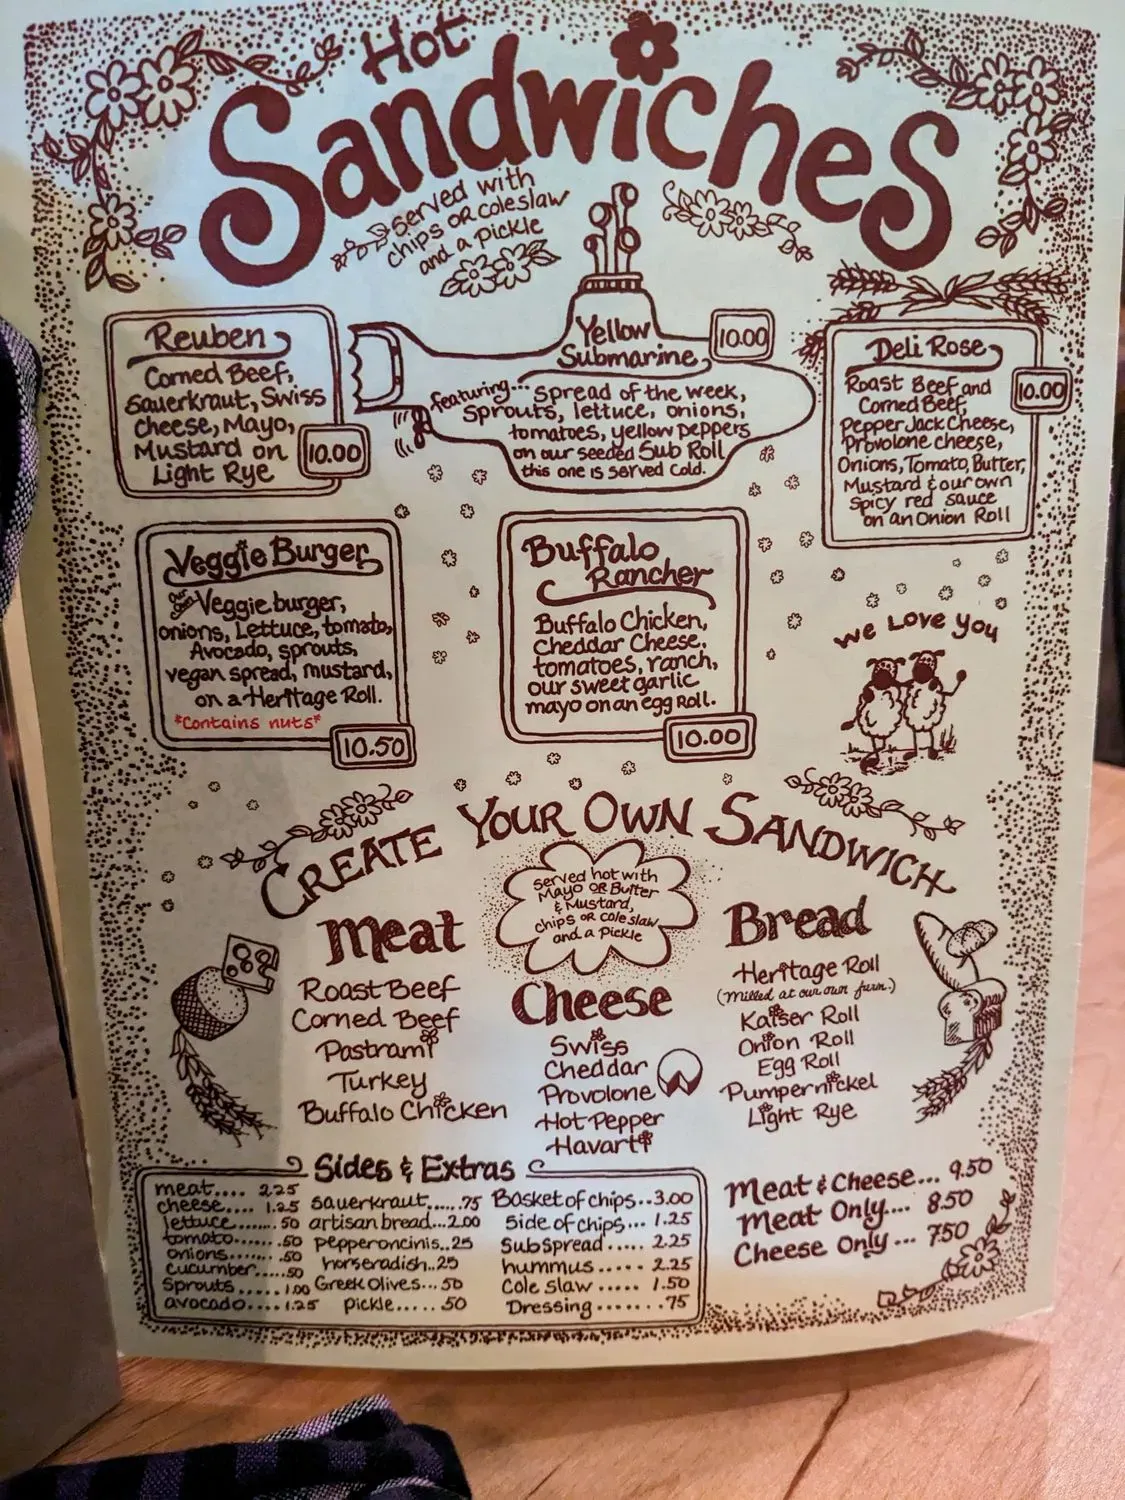 Hot
Sandwiches
served with
chips or coleslaw
and a pickle
Reuben
Corned Beef,
Sauerkraut, Swiss
cheese, Mayo,
Mustard on
Light Rye
10.00
Yellow
Submarine
10.00
featuring... spread of the week,
sprouts, lettuce, onions,
tomatoes, yellow peppers
on our seeded Sub Roll
this one is served cold.
Deli Rose
10.00
Roast Beef and
Corned Beef,
Pepper Jack Cheese,
Provolone cheese,
Onions, Tomato, Butter,
Mustard & our own
spicy red sauce
on an Onion Roll
Veggie Burger
Our Own Veggie burger,
onions, Lettuce, tomato,
Avocado, sprouts,
vegan spread, mustard,
on a Heritage Roll.
*Contains nuts*
10.50
Buffalo
Rancher
Buffalo Chicken,
Cheddar Cheese,
tomatoes, ranch,
our sweet garlic
mayo on an egg Roll.
10.00
We Love you
Create Your Own Sandwich
served hot with
Mayo or Butter
& Mustard,
chips or cole slaw
and a pickle
Meat
Roast Beef
Corned Beef
Pastrami
Turkey
Buffalo Chicken
Cheese
Swiss
Cheddar
Provolone
Hot Pepper
Havarti
Bread
Heritage Roll
(milled at our own farm.)
Kaiser Roll
Onion Roll
Egg Roll
Pumpernickel
Light Rye
Sides & Extras
meat.... 2.25
cheese.... 1.25
lettuce....... .50
tomato....... .50
onions....... .50
cucumber..... .50
Sprouts..... 1.00
avocado.... 1.25
sauerkraut..... .75
artisan bread... 2.00
pepperoncinis.. 25
horseradish.. 25
Greek Olives... 50
pickle..... .50
Basket of chips.. 3.00
Side of chips... 1.25
Sub Spread..... 2.25
hummus..... 2.25
Cole Slaw..... 1.50
Dressing....... .75
Meat & Cheese... 9.50
Meat Only.... 8.50
Cheese Only... 7.50